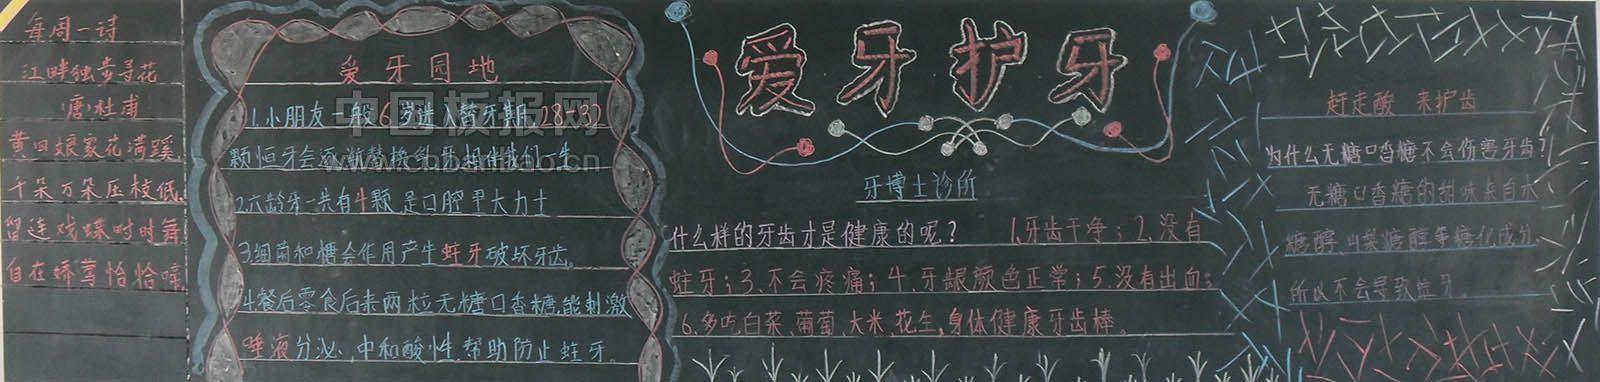 每周一诗
江畔独步寻花
(唐)杜甫
黄四娘家花满蹊
千朵万朵压枝低
留连戏蝶时时舞
自在娇莺恰恰啼
爱牙园地
1.小朋友一般6岁进入替牙期,28-32
颗恒牙会逐渐替换乳牙相伴我们一生
2.六龄牙一共有4颗是口腔里大力士
3.细菌和糖会作用产生蛀牙破坏牙齿。
4.餐后零食后来两粒无糖口香糖,能刺激
唾液分泌、中和酸性、帮助防止蛀牙。
中国板报网
www.cnbanbao.cn
爱牙护牙
牙博士诊所
什么样的牙齿才是健康的呢? 1.牙齿干净;2.没有
蛀牙;3.不会疼痛;4.牙龈颜色正常;5.没有出血;
6.多吃白菜、葡萄、大米、花生,身体健康牙齿棒。
赶走酸 来护齿
为什么无糖口香糖不会伤害牙齿?
无糖口香糖的甜味来自木
糖醇、山梨糖醇等糖化成分,
所以不会导致蛀牙。